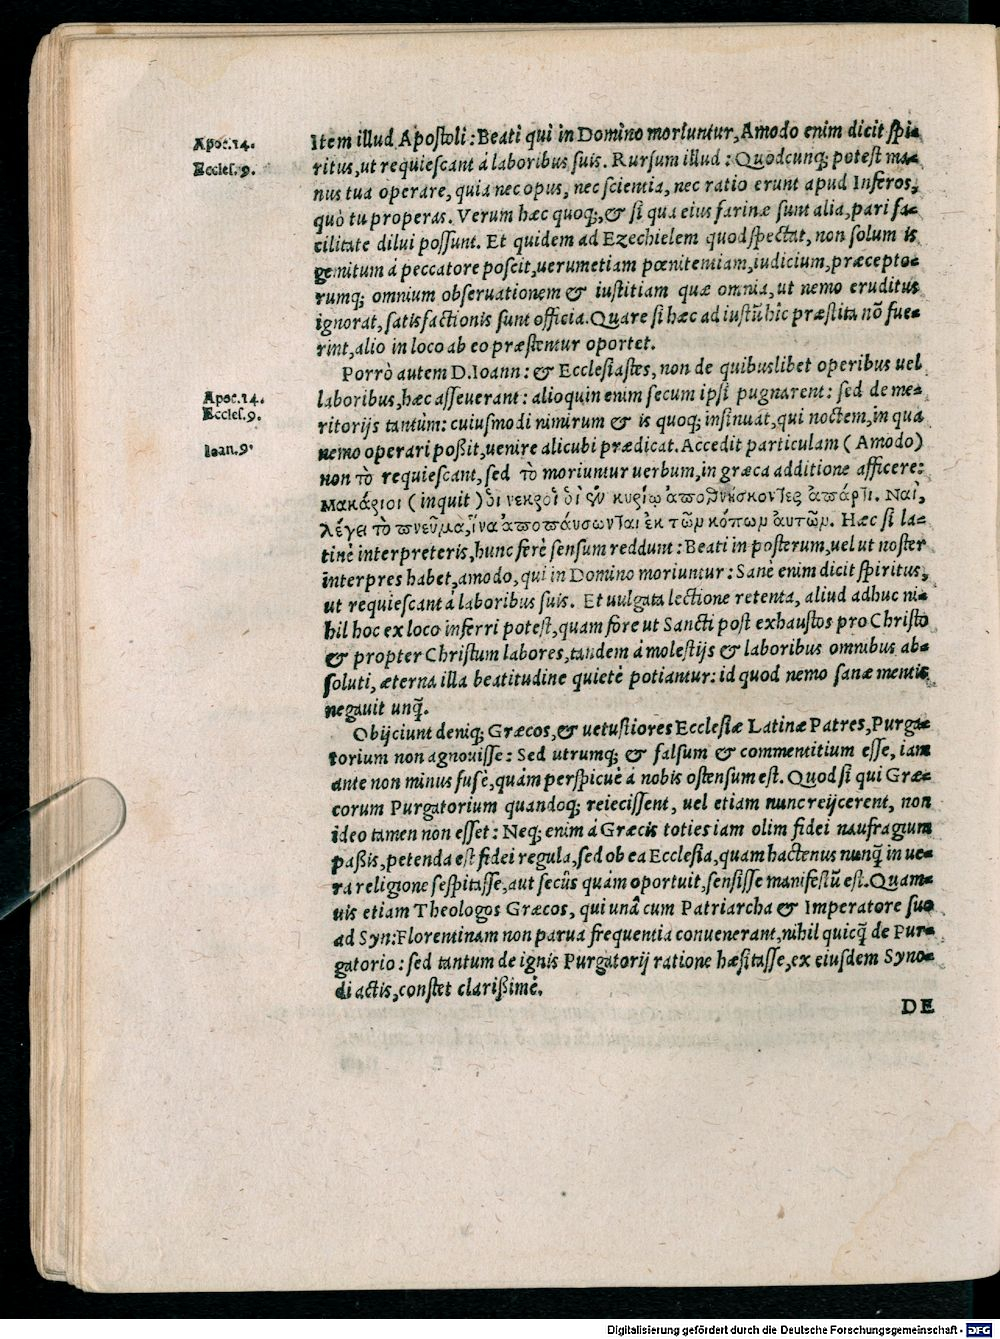 Apoc. 14.
Eccles. 9.
Item illud Apostoli: Beati qui in Domino moriuntur, Amodo enim dicit spi-
ritus, ut requiescant á laboribus suis. Rursum illud: Quodcunq; potest ma-
nus tua operare, quia nec opus, nec scientia, nec ratio erunt apud Inferos,
quò tu properas. Verum hæc quoq;, & si qua eius farinæ sunt alia, pari fa-
cilitate dilui possunt. Et quidem ad Ezechielem quod spectat, non solum is
gemitum á peccatore poscit, uerumetiam pœnitentiam, iudicium, præcepto-
rumq; omnium obseruationem & iustitiam quæ omnia, ut nemo eruditus
ignorat, satisfactionis sunt officia. Quare si hæc ad iustũ hîc præstita nõ fue-
rint, alio in loco ab eo præstentur oportet.
Porrò autem D. Ioann: & Ecclesiastes, non de quibuslibet operibus uel
Apoc. 14.
Eccles. 9.
laboribus, hæc asseuerant: alioquin enim secum ipsi pugnarent: sed de me-
ritorijs tantùm: cuiusmodi nimirum & is quoq; insinuat, qui noctem, in qua
Ioan. 9.
nemo operari poßit, uenire alicubi prædicat. Accedit particulam (Amodo)
non τὸ requiescant, sed τὸ moriuntur uerbum, in græca additione afficere:
Μακάριοι (inquit) ὁι νεκροὶ ὁι ἐν κυρίῳ ἀποθνήσκοντες ἀπάρτι. Ναὶ,
λέγει τὸ πνεῦμα, ἵνα ἀποπάυσωνται ἐκ τῶν κόπων ἀυτῶν. Hæc si la-
tinè interpreteris, hunc ferè sensum reddunt: Beati in posterum, uel ut noster
interpres habet, amodo, qui in Domino moriuntur: Sanè enim dicit spiritus,
ut requiescant á laboribus suis. Et uulgata lectione retenta, aliud adhuc ni-
hil hoc ex loco inferri potest, quam fore ut Sancti post exhaustos pro Christo
& propter Christum labores, tandem á molestijs & laboribus omnibus ab-
soluti, æterna illa beatitudine quietè potiantur: id quod nemo sanæ mentis
negauit unq̃.
Obijciunt deniq; Græcos, & uetustiores Ecclesiæ Latinæ Patres, Purga-
torium non agnouisse: Sed utrumq; & falsum & commentitium esse, iam
ante non minus fusè, quám perspicuè á nobis ostensum est. Quod si qui Græ-
corum Purgatorium quandoq; reiecissent, uel etiam nunc reijcerent, non
ideo tamen non esset: Neq; enim á Græcis toties iam olim fidei naufragium
paßis, petenda est fidei regula, sed ob ea Ecclesia, quam hactenus nunq̃ in ue-
ra religione sespitasse, aut secûs quám oportuit, sensisse manifestũ est. Quam-
uis etiam Theologos Græcos, qui unâ cum Patriarcha & Imperatore suo
ad Syn: Florentinam non parua frequentia conuenerant, nihil quicq̃ de Pur-
gatorio: sed tantum de ignis Purgatorij ratione hæsitasse, ex eiusdem Syno-
di actis, constet clarißimè.
DE
Digitalisierung gefördert durch die Deutsche Forschungsgemeinschaft - DFG